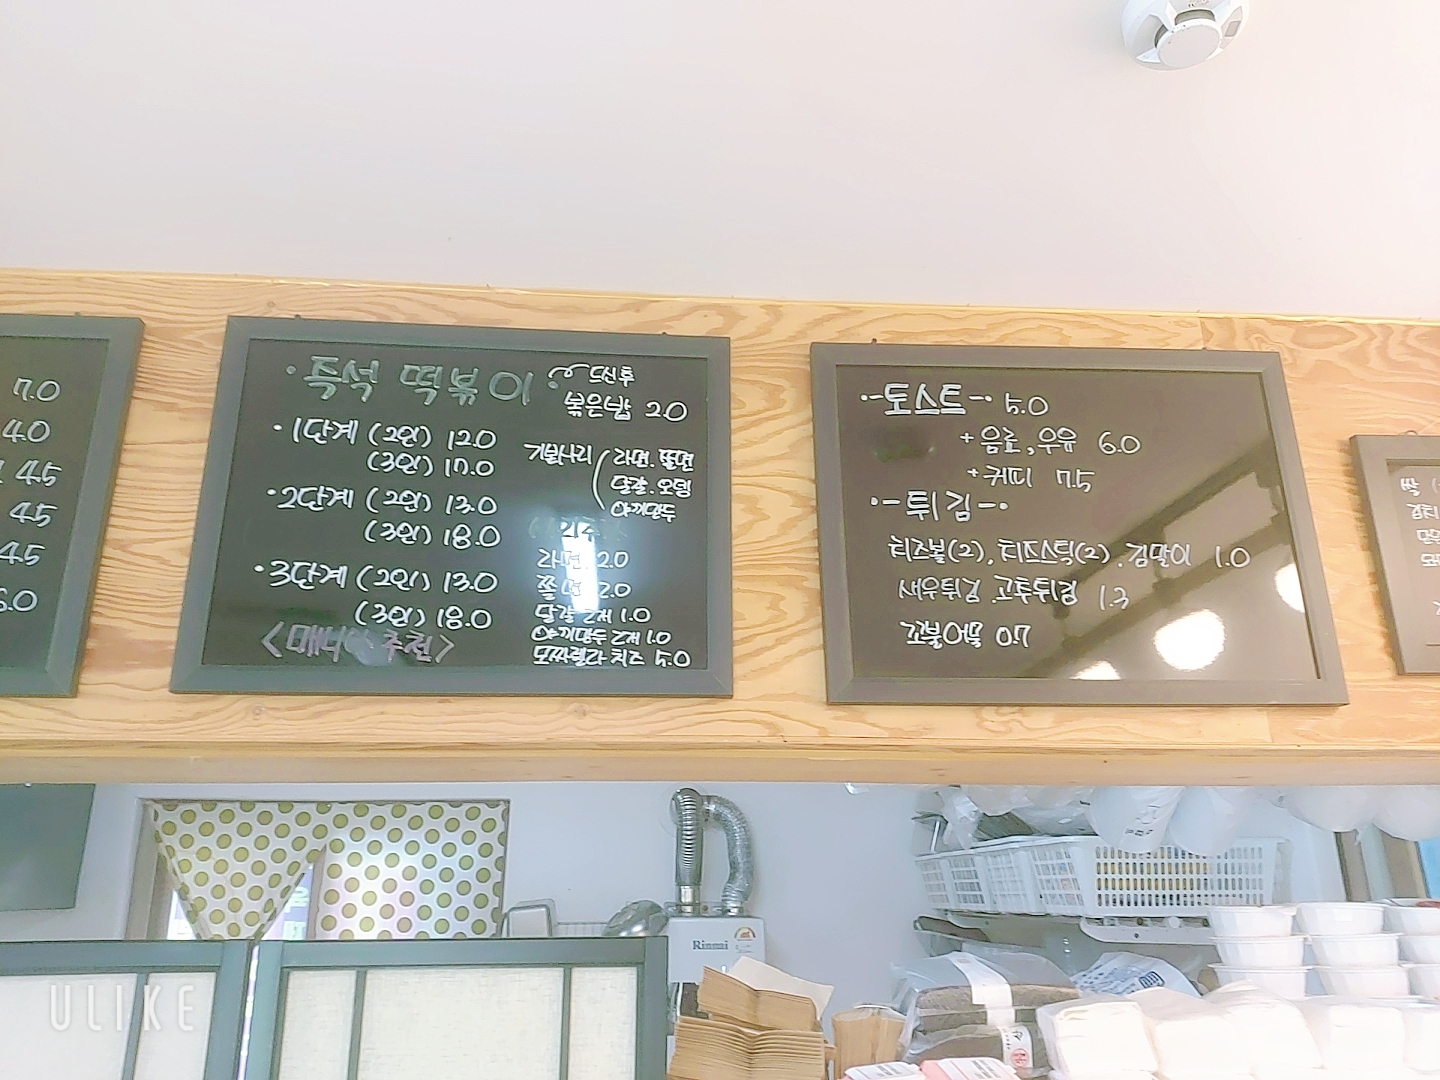 7.0
4.0
4.5
4.5
4.5
6.0
· 즉석 떡볶이 ·
드신후
볶은밥 2.0
· 1단계 (2인) 12.0
(3인) 17.0
· 2단계 (2인) 13.0
(3인) 18.0
· 3단계 (2인) 13.0
(3인) 18.0
<매니아 추천>
기본사리
라면. 쫄면
달걀. 오뎅
야끼만두
라면 2.0
쫄면 2.0
달걀 2개 1.0
야끼만두 2개 1.0
모짜렐라 치즈 5.0
·-토스트-· 5.0
+ 음료, 우유 6.0
+ 커피 7.5
·-튀김-·
치즈볼(2), 치즈스틱(2), 김말이 1.0
새우튀김. 고추튀김 1.3
꼬불어묵 0.7
Rinnai
ULIKE